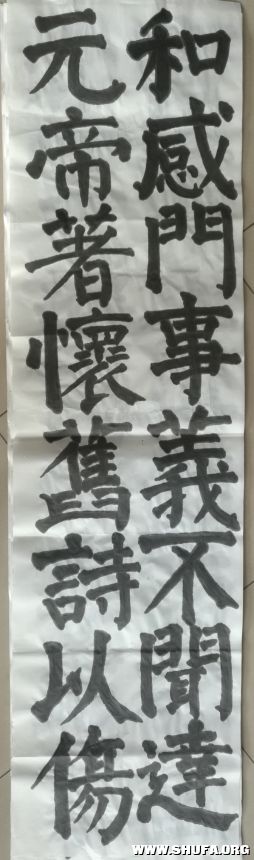 和感門事義不聞達
元帝著懷舊詩以傷
WWW.SHUFA.ORG